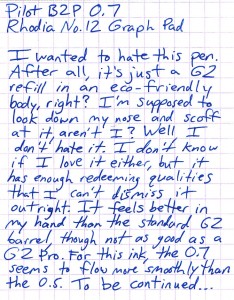 Pilot B2P 0.7
Rhodia No. 12 Graph Pad
I wanted to hate this pen.
After all, it's just a G2
refill in an eco-friendly
body, right? I'm supposed to
look down my nose and scoff
at it, aren't I? Well I
don't hate it. I don't know
if I love it either, but it
has enough redeeming qualities
that I can't dismiss it
outright. It feels better in
my hand than the standard G2
barrel, though not as good as a
G2 Pro. For this ink, the 0.7
seems to flow more smoothly than
the 0.5. To be continued...